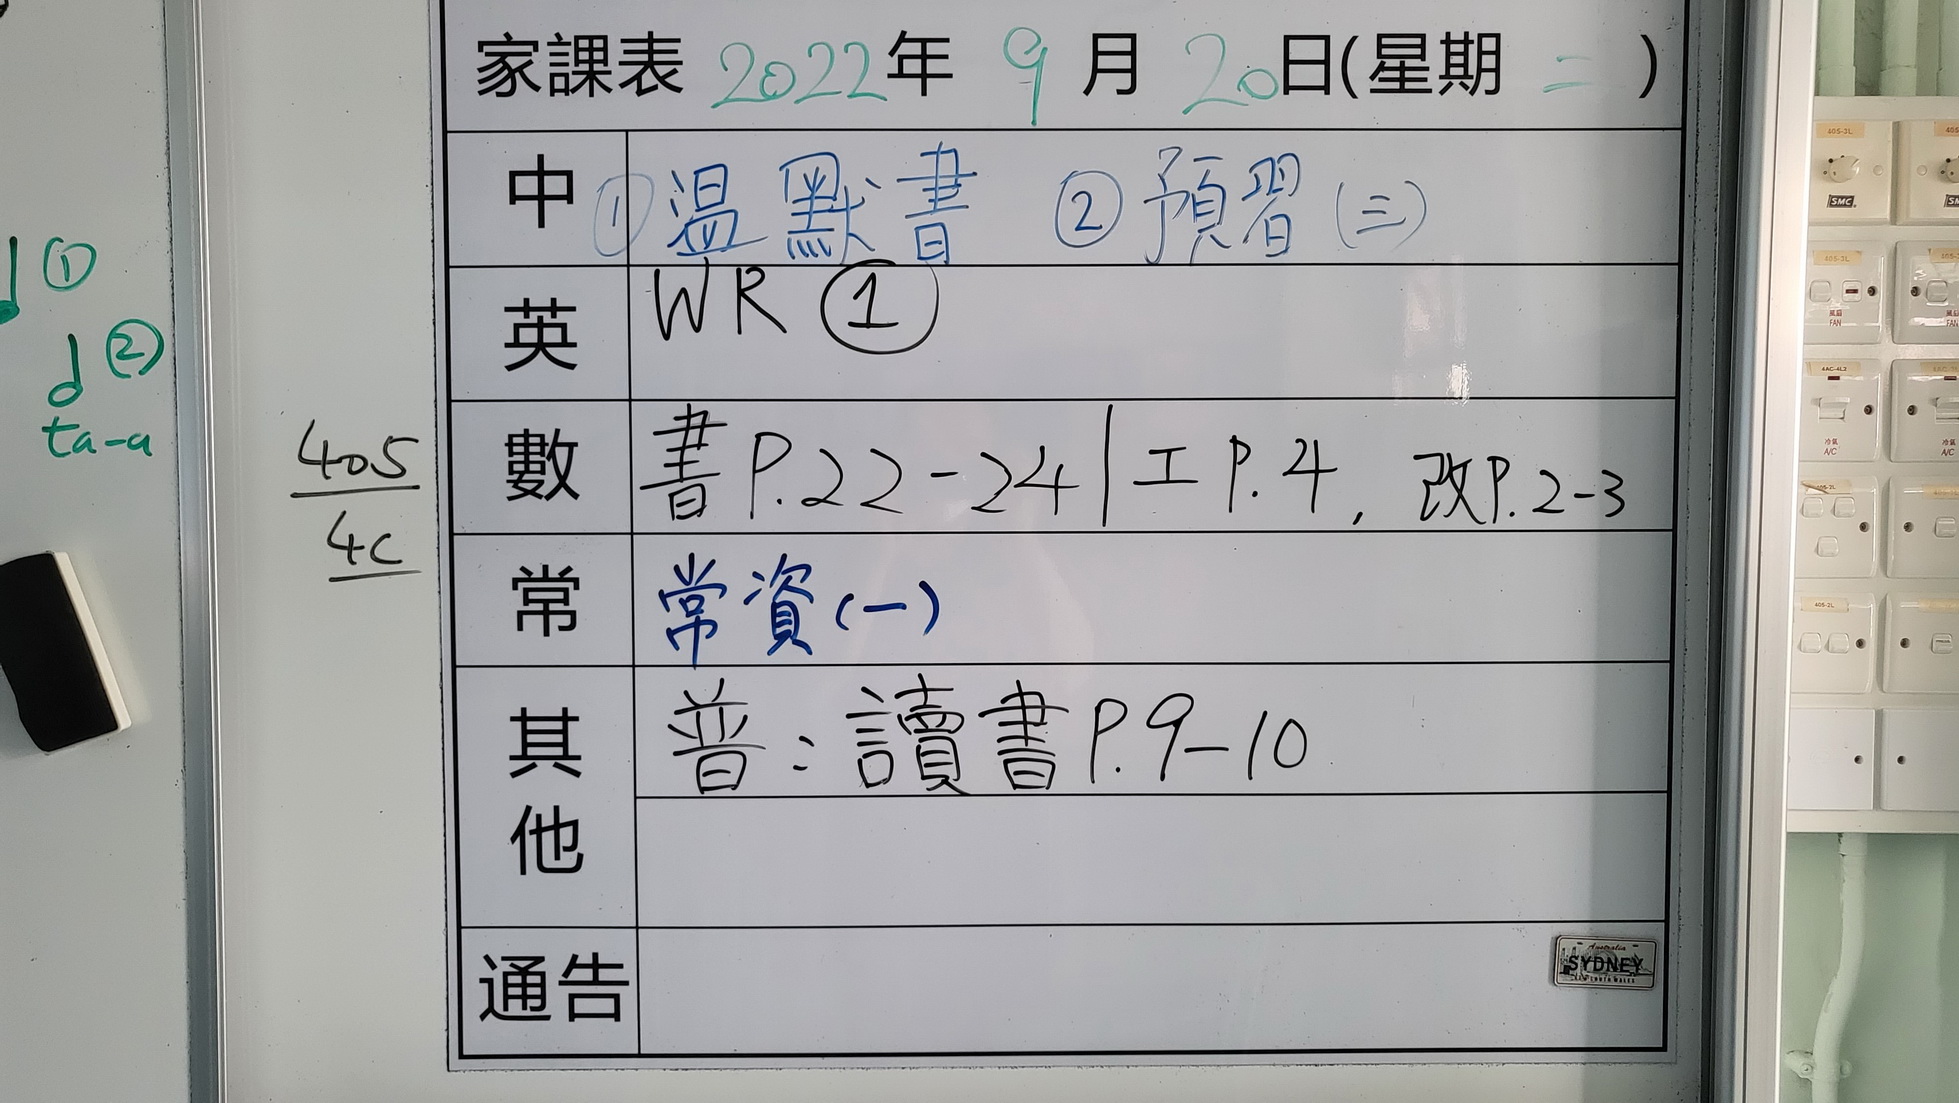 家課表 2022年 9月 20日(星期二)
中 ①溫默書 ②預習(三)
英 WR ①
數 書P.22-24|工P.4, 改P.2-3
常 常資(一)
其他 普:讀書P.9-10
通告
SYDNEY
Australia
405
4C
①
②
ta-a
405-2L
SMC
風扇
FAN
4AC-4L2
冷氣
A/C
405-2L